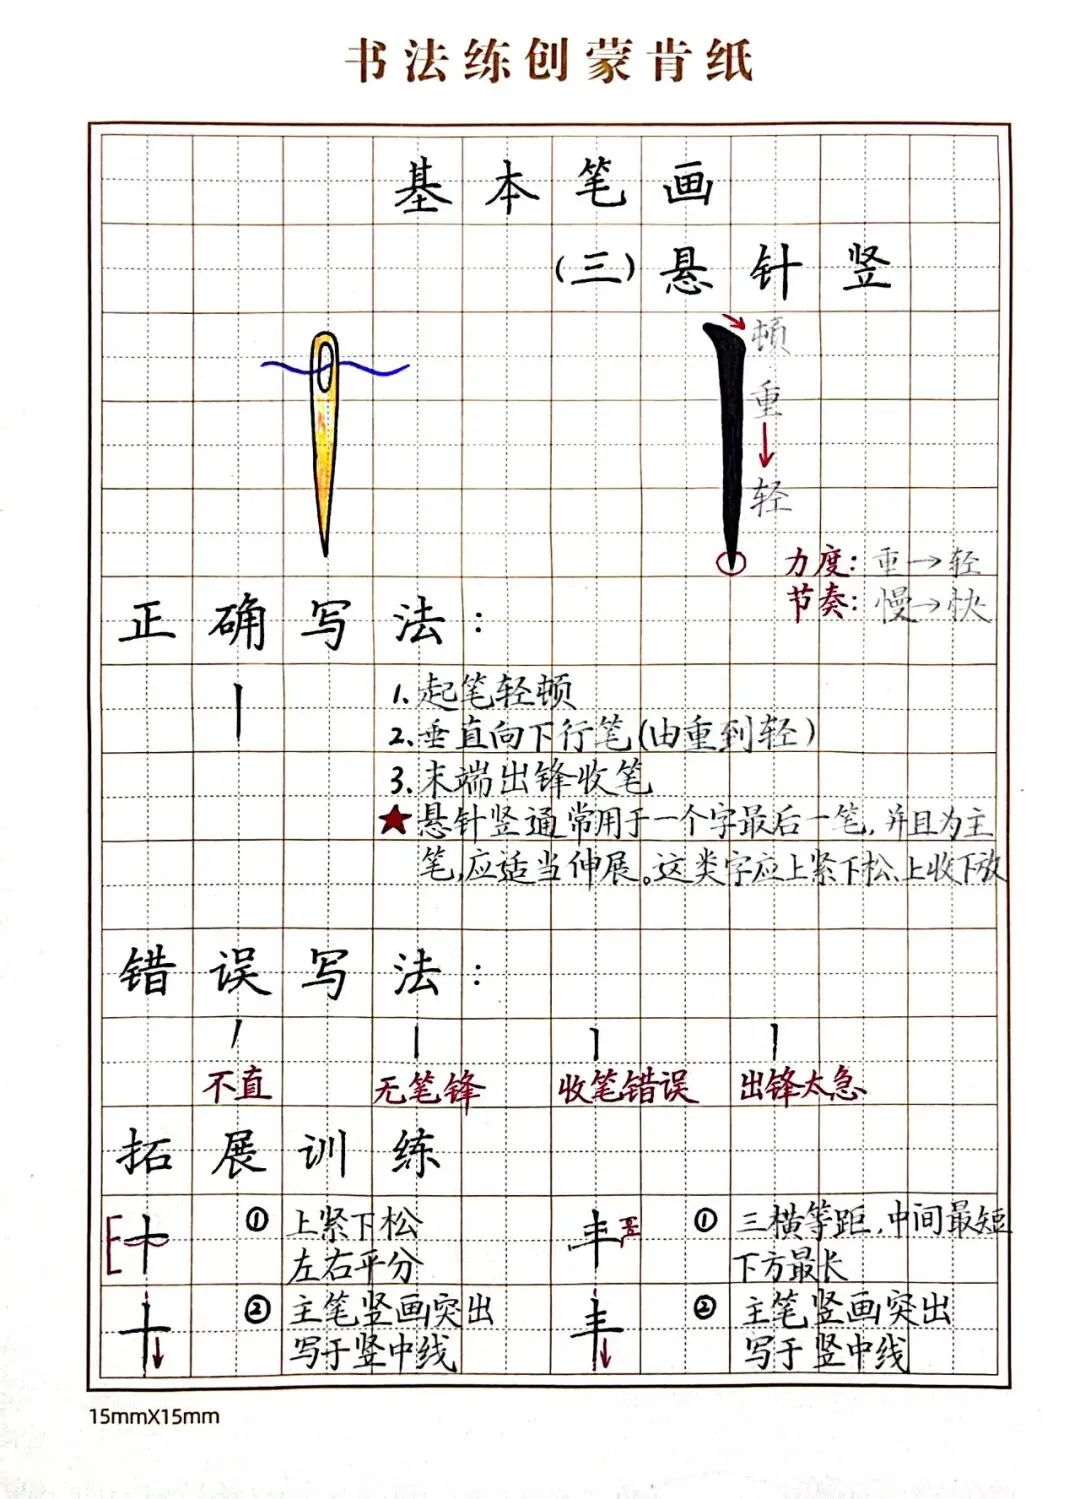 书法练创蒙肯纸
基本笔画
(三)悬针竖
顿
重
轻
力度：重→轻
节奏：慢→快
正确写法：
1.起笔轻顿
2.垂直向下行笔(由重到轻)
3.末端出锋收笔
★悬针竖通常用于一个字最后一笔,并且为主
笔,应适当伸展。这类字应上紧下松、上收下放
错误写法：
不直 无笔锋 收笔错误 出锋太急
拓展训练
十 ①上紧下松
左右平分
丰 ①三横等距,中间最短
下方最长
十 ②主笔竖画突出
写于竖中线
丰 ②主笔竖画突出
写于竖中线
15mmX15mm